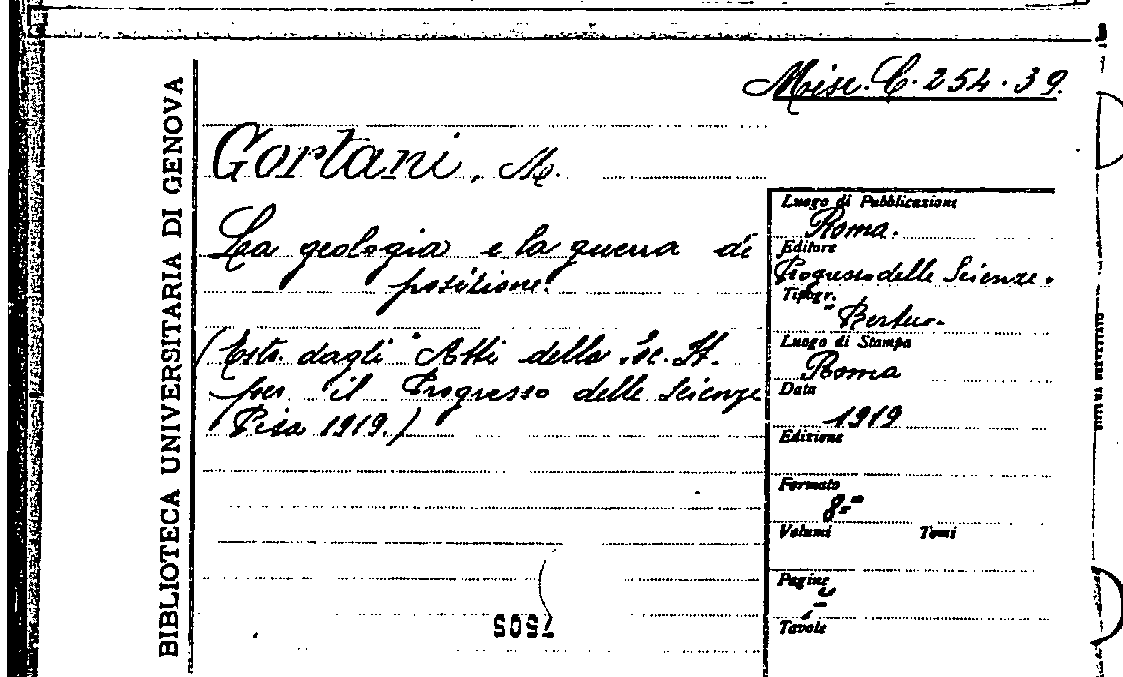 Misc. C. 254. 39.
BIBLIOTECA UNIVERSITARIA DI GENOVA
Gortani, M.
La geologia e la guerra di
posizione.
(Estr. dagli "Atti della Soc. It.
per il Progresso delle Scienze
Pisa 1919.)
7505
Luogo di Pubblicazione
Roma.
Editore
Progresso delle Scienze.
Tipogr.
Bertero.
Luogo di Stampa
Roma
Data
1919
Edizione
Formato
8º
Volumi Tomi
Pagine
Tavole